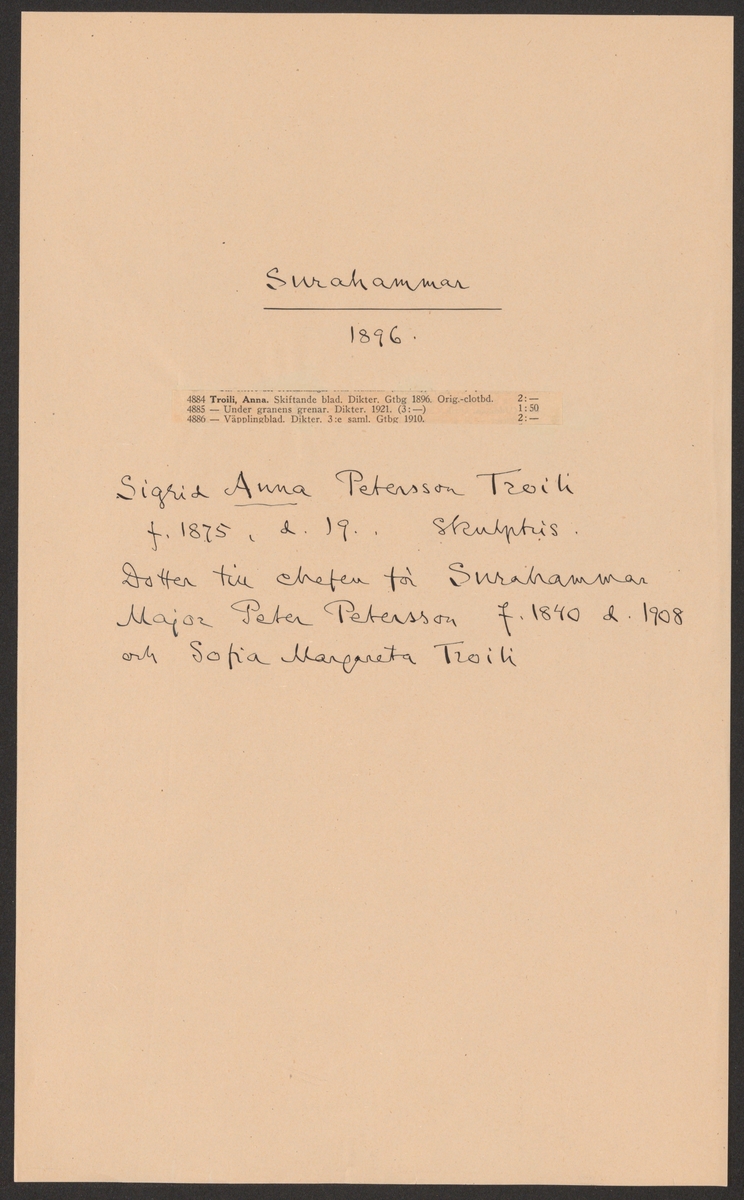 Surahammar
1896.
4884 Troili, Anna. Skiftande blad. Dikter. Gtbg 1896. Orig.-clotbd. 2:—
4885 — Under granens grenar. Dikter. 1921. (3:—) 1:50
4886 — Väpplingblad. Dikter. 3:e saml. Gtbg 1910. 2:—
Sigrid Anna Petersson Troili
f. 1875, d. 19. . Skulptris.
Dotter till chefen för Surahammar
Major Peter Petersson f. 1840 d. 1908
och Sofia Margareta Troili